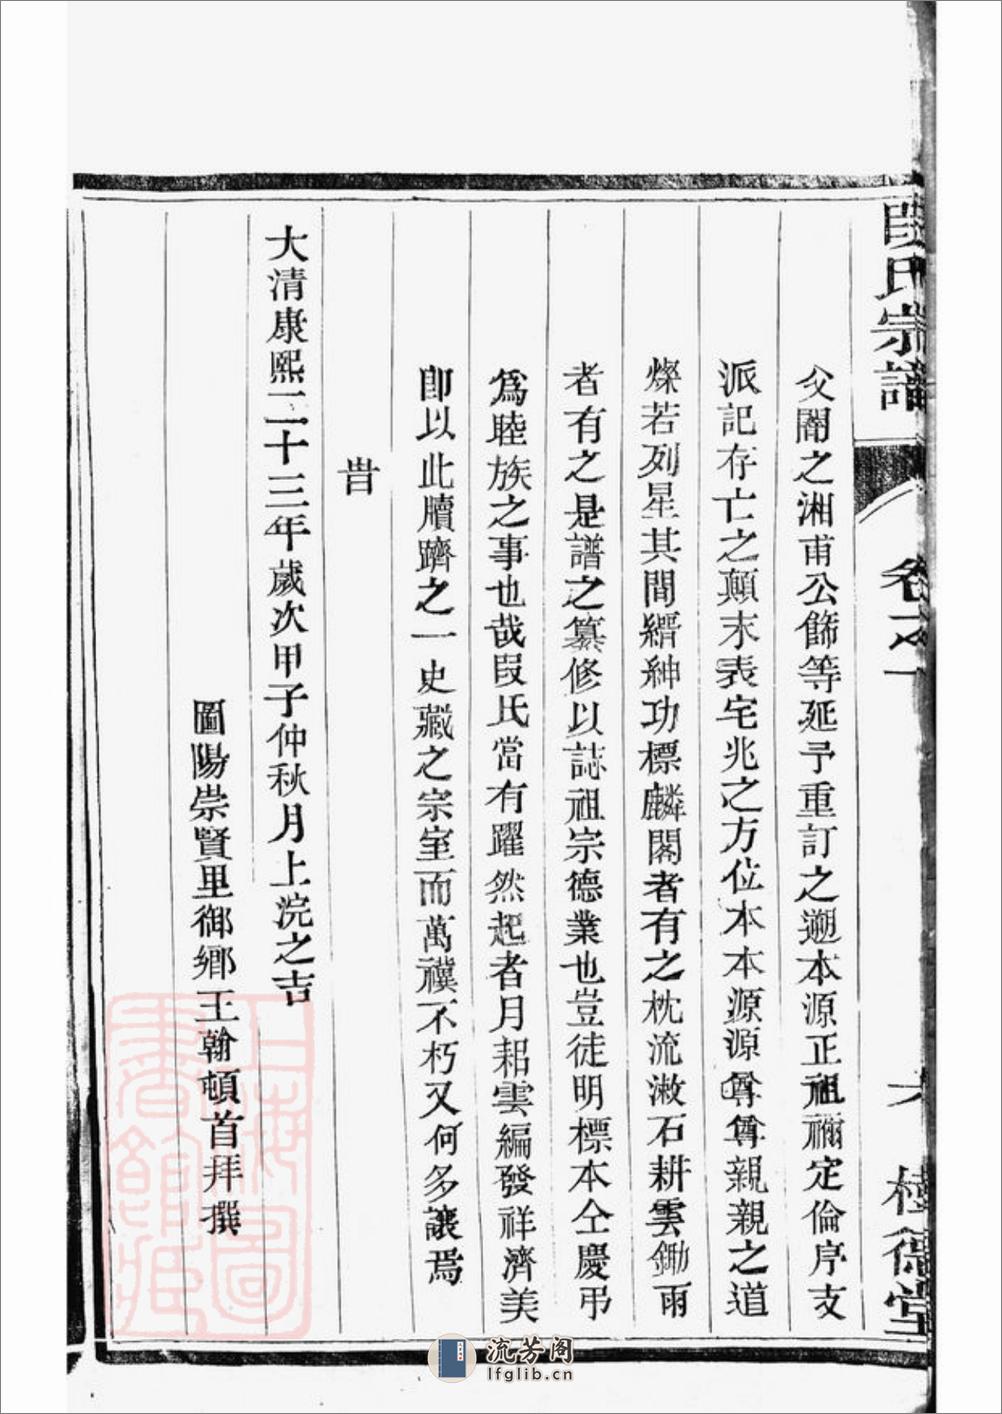 段氏宗譜
卷之一
六
樹德堂
父閣之湘甫公篩等延予重訂之遡本源正祖禰定倫序支
派記存亡之顛末表宅兆之方位本本源源尊尊親親之道
燦若列星其間縉紳功標麟閣者有之枕流漱石耕雲鋤雨
者有之是譜之纂修以誌祖宗德業也豈徒明標本仝慶弔
爲睦族之事也哉段氏當有躍然起者月耜雲編發祥濟美
卽以此牘躋之一史藏之宗室而萬禩不朽又何多讓焉
旹
大清康熙二十三年歲次甲子仲秋月上浣之吉
圖陽崇賢里御鄉王翰頓首拜撰
上海圖書館藏
流芳阁
lfglib.cn